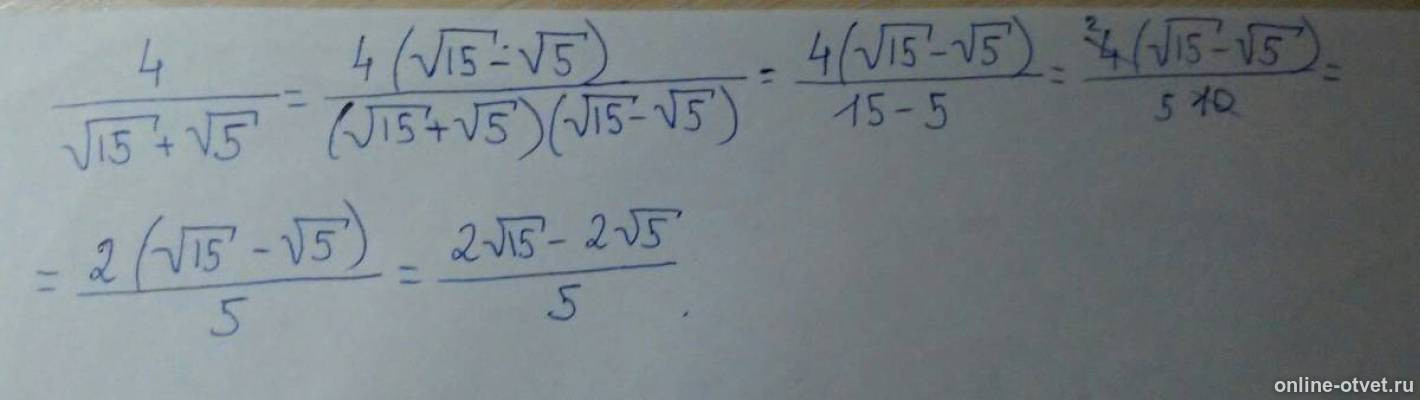 4/(√15 + √5) = 4(√15 - √5)/((√15 + √5)(√15 - √5)) = 4(√15 - √5)/(15 - 5) = ²4(√15 - √5)/(5 10) =
= 2(√15 - √5)/5 = (2√15 - 2√5)/5 .
online-otvet.ru